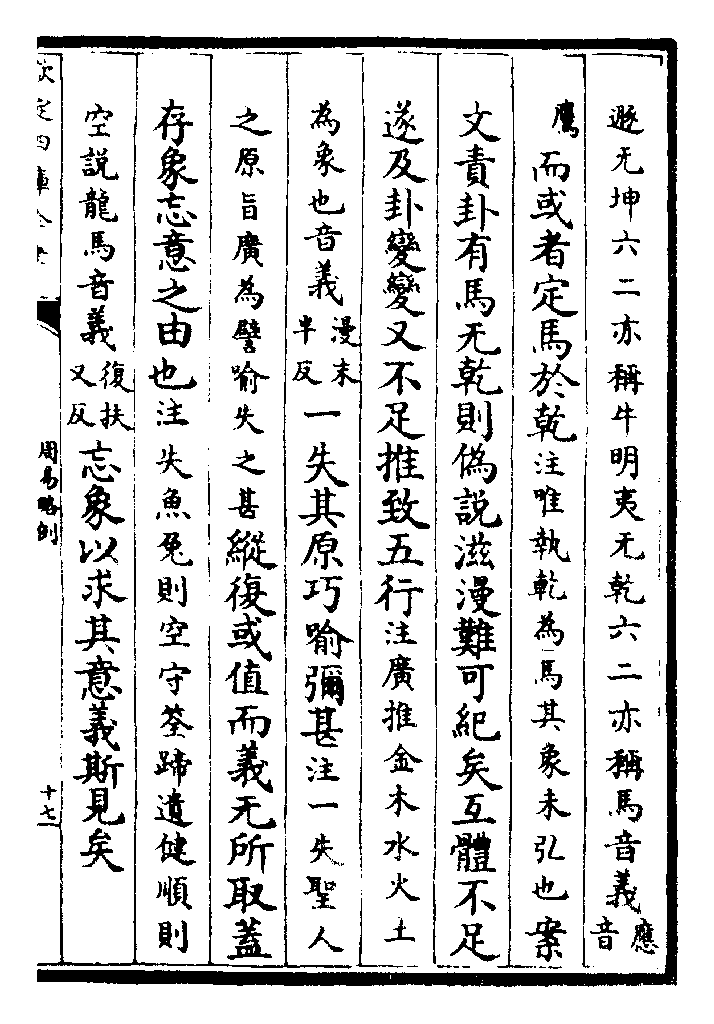 遯无坤六二亦稱牛明夷无乾六二亦稱馬音義應音
鷹而或者定馬於乾注唯執乾為馬其象未弘也案
文責卦有馬无乾則偽說滋漫難可紀矣互體不足
遂及卦變變又不足推致五行注廣推金木水火土
為象也音義漫末半反一失其原巧喻彌甚注一失聖人
之原旨廣為譬喻失之甚縱復或值而義无所取蓋
存象忘意之由也注失魚兔則空守筌蹄遺健順則
空說龍馬音義復扶又反忘象以求其意義斯見矣
欽定四庫全書
周易略例
十七